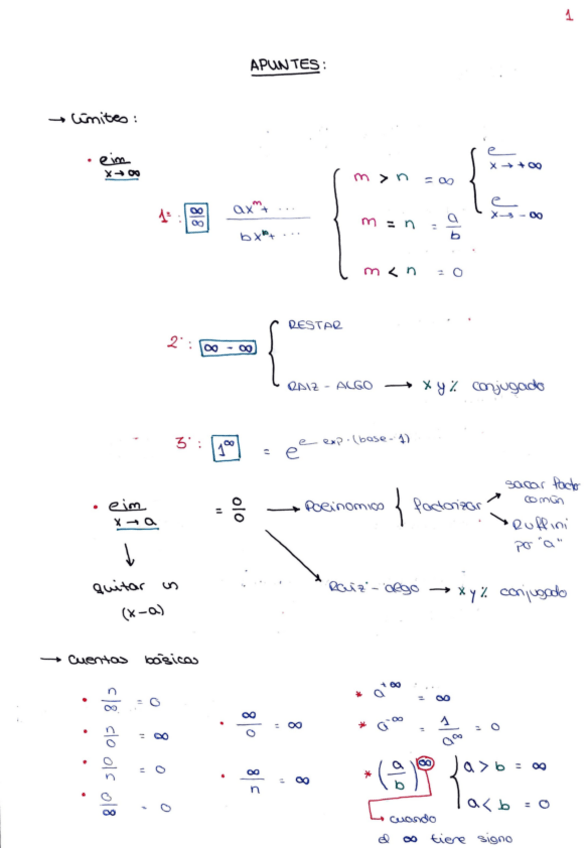 1
APUNTES:
→ Límites:
• lim x→∞
1º: ∞/∞ ax^m+ ... / bx^n+ ... { m > n = ∞ { l x→+∞
l x→-∞
m = n = a/b
m < n = 0
2º: ∞ - ∞ { RESTAR
RAIZ - ALGO → x y % conjugado
3º: 1^∞ = e^(l exp·(base-1))
• lim x→a = 0/0 → Polinomios { factorizar → sacar factor común
→ Ruffini por "a"
↓
quitar
(x-a)
Raiz - algo → x y % conjugado
→ Cuentas básicas
• n/∞ = 0
• n/0 = ∞
• 0/n = 0
• 0/∞ = 0
• ∞/0 = ∞
• ∞/n = ∞
* a^+∞ = ∞
* a^-∞ = 1/a^∞ = 0
* (a/b)^∞ { a > b = ∞
a < b = 0
cuando
el ∞ tiene signo